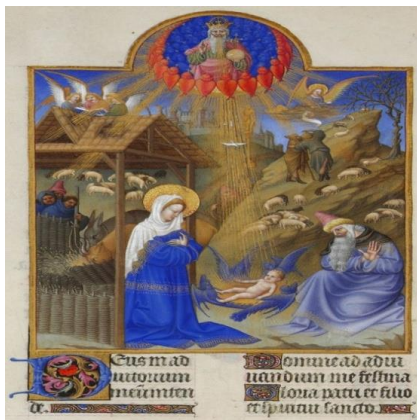 Deus in ad
iutorium
meum inten
de.
Domine ad adiu
uandum me festina
Gloria patri et filio
et spiritui sancto